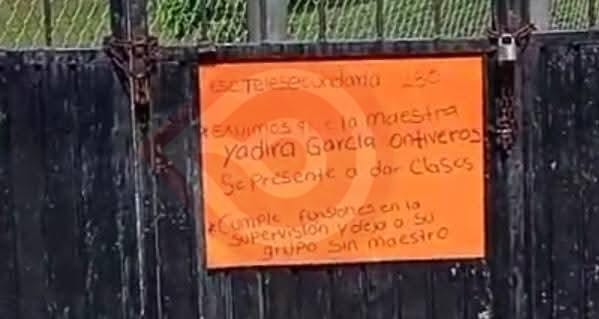 ESC Telesecundaria 230
*Exijimos que la maestra
Yadira García Ontiveros
Se presente a dar Clases
*Cumple funsiones en la
supervisión y deja a su
grupo sin maestro